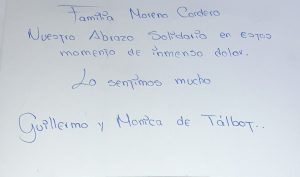 Familia Moreno Cordero
Nuestro Abrazo Solidario en estos
momento de inmenso dolor.
Lo sentimos mucho
Guillermo y Monica de Tálbot..